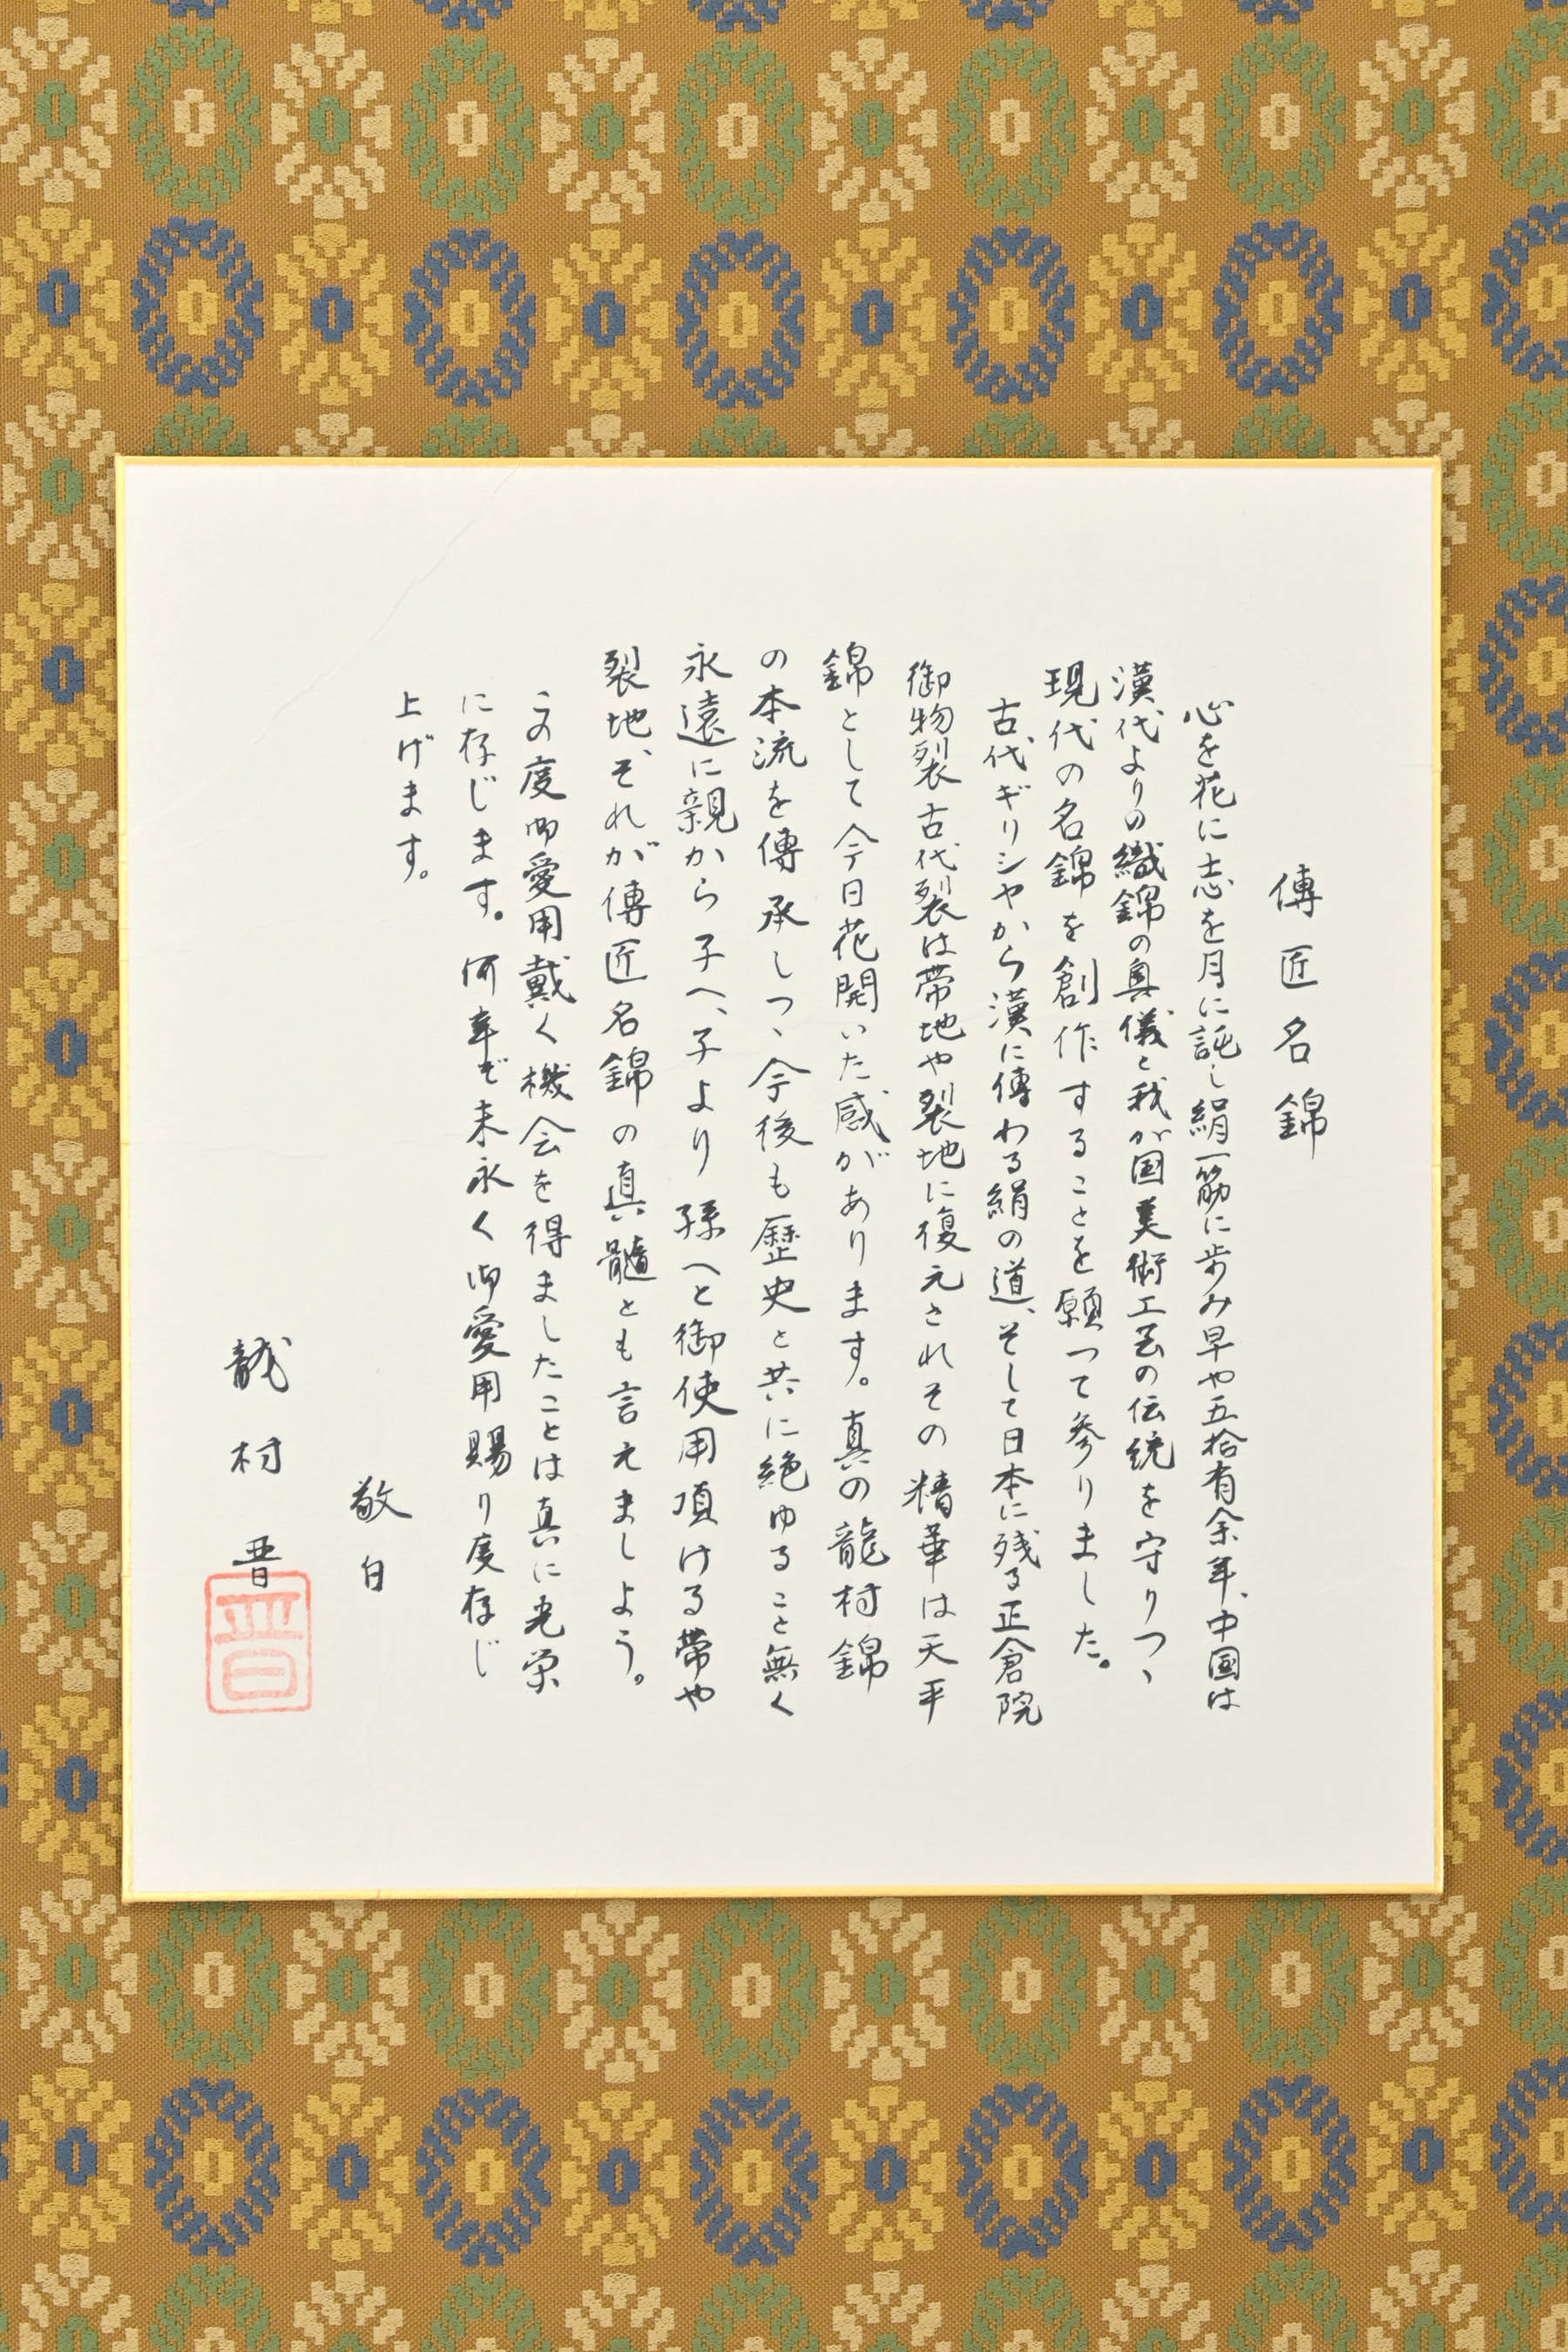 傳匠名錦
心を花に志を月に託し絹一筋に歩み早や五拾有余年、中国は
漢代よりの織錦の奥儀と我が国美術工芸の伝統を守りつゝ
現代の名錦を創作することを願って参りました。
古代ギリシヤから漢に傳わる絹の道、そして日本に残る正倉院
御物裂古代裂は帯地や裂地に復元されその精華は天平
錦として今日花開いた感があります。真の龍村錦
の本流を傳承しつゝ今後も歴史と共に絶ゆること無く
永遠に親から子へ、子より孫へと御使用頂ける帯や
裂地、それが傳匠名錦の真髄とも言えましよう。
この度御愛用戴く機会を得ましたことは真に光栄
に存じます。何卒ぞ末永く御愛用賜り度存じ
上げます。
敬白
龍村晋
晋